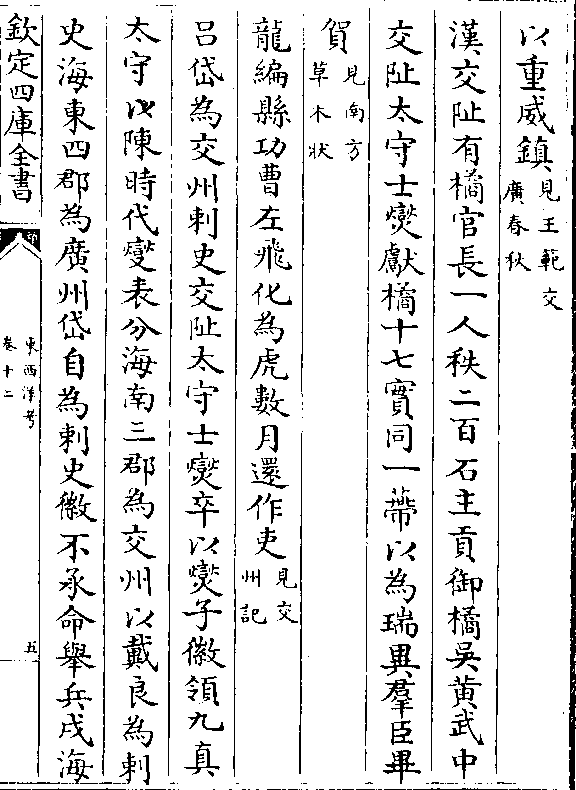 以重威鎮見王範交廣春秋
漢交阯有橘官長一人秩二百石主貢御橘吳黃武中
交阯太守士燮獻橘十七實同一蔕以為瑞異羣臣畢
賀見南方草木狀
龍編縣功曹左飛化為虎數月還作吏見交州記
呂岱為交州刺史交阯太守士燮卒以燮子徽領九真
太守以陳時代燮表分海南三郡為交州以戴良為刺
史海東四郡為廣州岱自為刺史徽不承命舉兵戍海
欽定四庫全書
東西洋考
卷十二
五